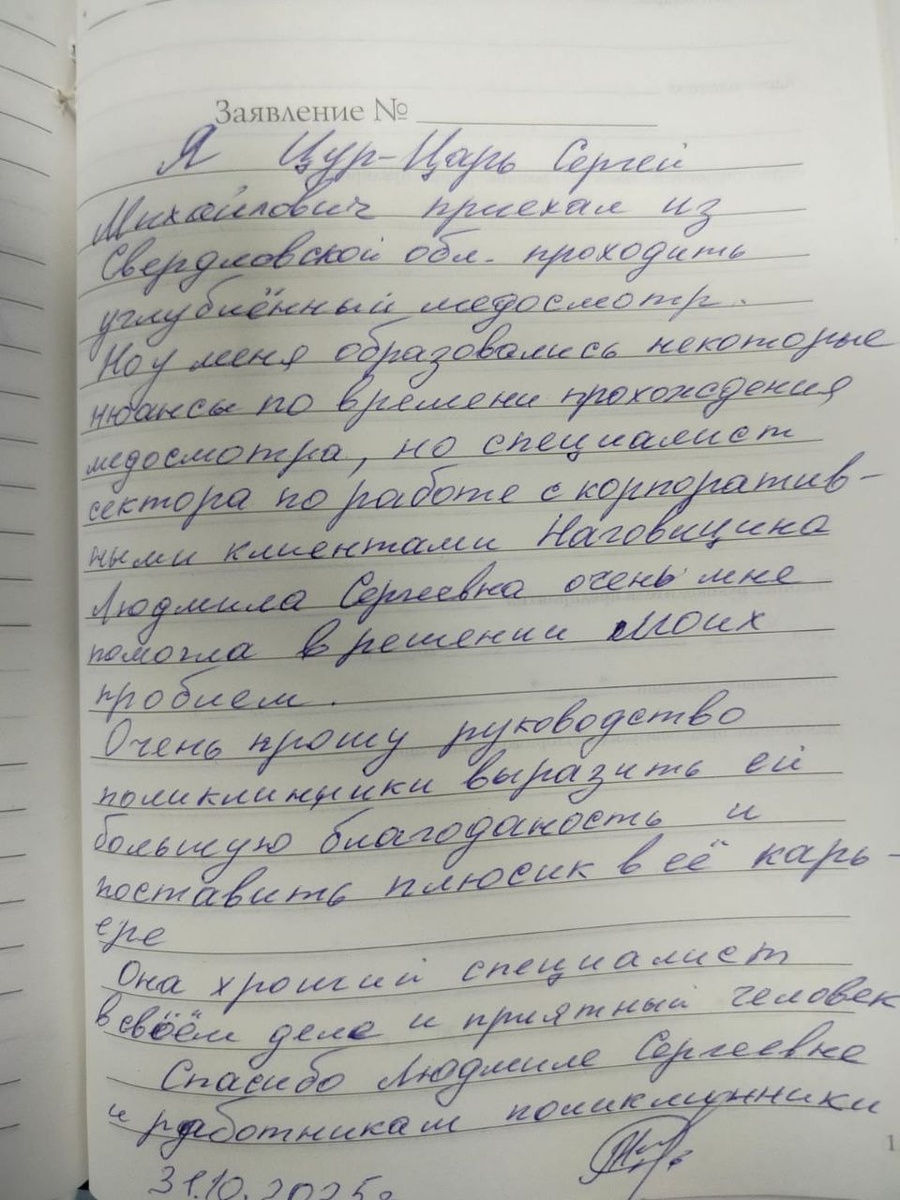 Заявление №
Я Цур-Царь Сергей
Михайлович приехал из
Свердловской обл. проходить
углублённый медосмотр.
Но у меня образовались некоторые
нюансы по времени прохождения
медосмотра, но специалист
сектора по работе с корпоратив-
ными клиентами Наговицина
Людмила Сергеевна очень мне
помогла в решении моих
проблем.
Очень прошу руководство
поликлинники выразить ей
большую благоданость и
поставить плюсик в её карь-
ере
Она хроший специалист
в своём деле и приятный человек
Спасибо Людмиле Сергеевне
и работникам поликлинники
31.10.2025г
1